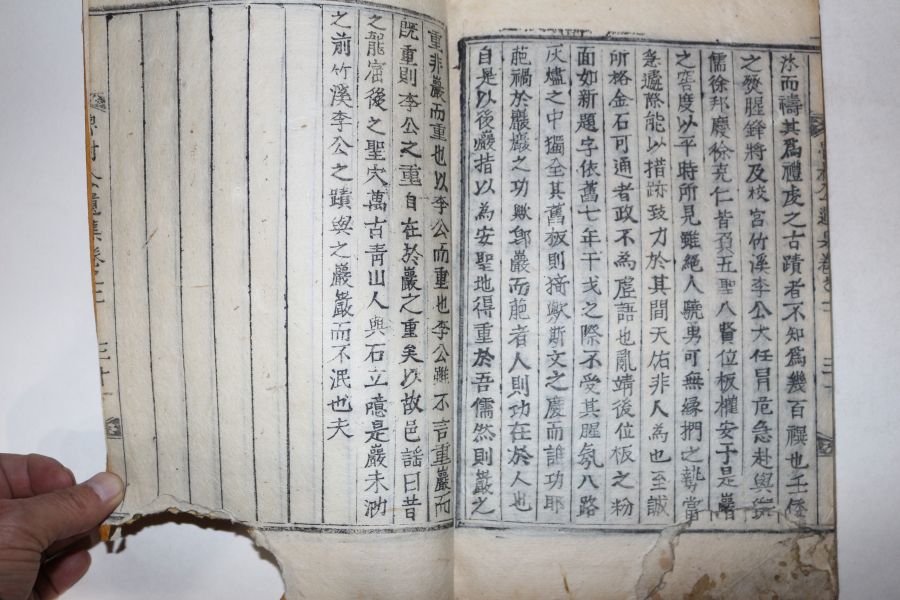 沐而禱其為禮虔之古蹟者不知為幾百禩也壬倭
之燹腥鋒將及校宮竹溪李公大任冒危急赴與
儒徐邦慶徐克仁皆負五聖八賢位板權安于是巖
之窖度以平時所見雖絕人驍男可無緣捫之勢當
急遽際能以措跡致力於其間天佑非人為也至誠
所格金石可通者政不為虛語也亂靖後位板之粉
面如新題字依舊七年干戈之際不受其腥氛八路
灰燼之中獨全其舊板則猗歟斯文之慶而誰功耶
葩禍於巖巖之功歟郎巖而葩者人則功在於人也
自是以後巖措以為安聖地得重於吾儒然則巖之
重非巖而重也以李公而重也李公雖不言重巖而
既重則李公之重自在於巖之重矣以故邑謠曰昔
之龍窟後之聖穴萬古青山人與石立噫是巖未泐
之前竹溪李公之蹟與之巖巖而不泯也夫